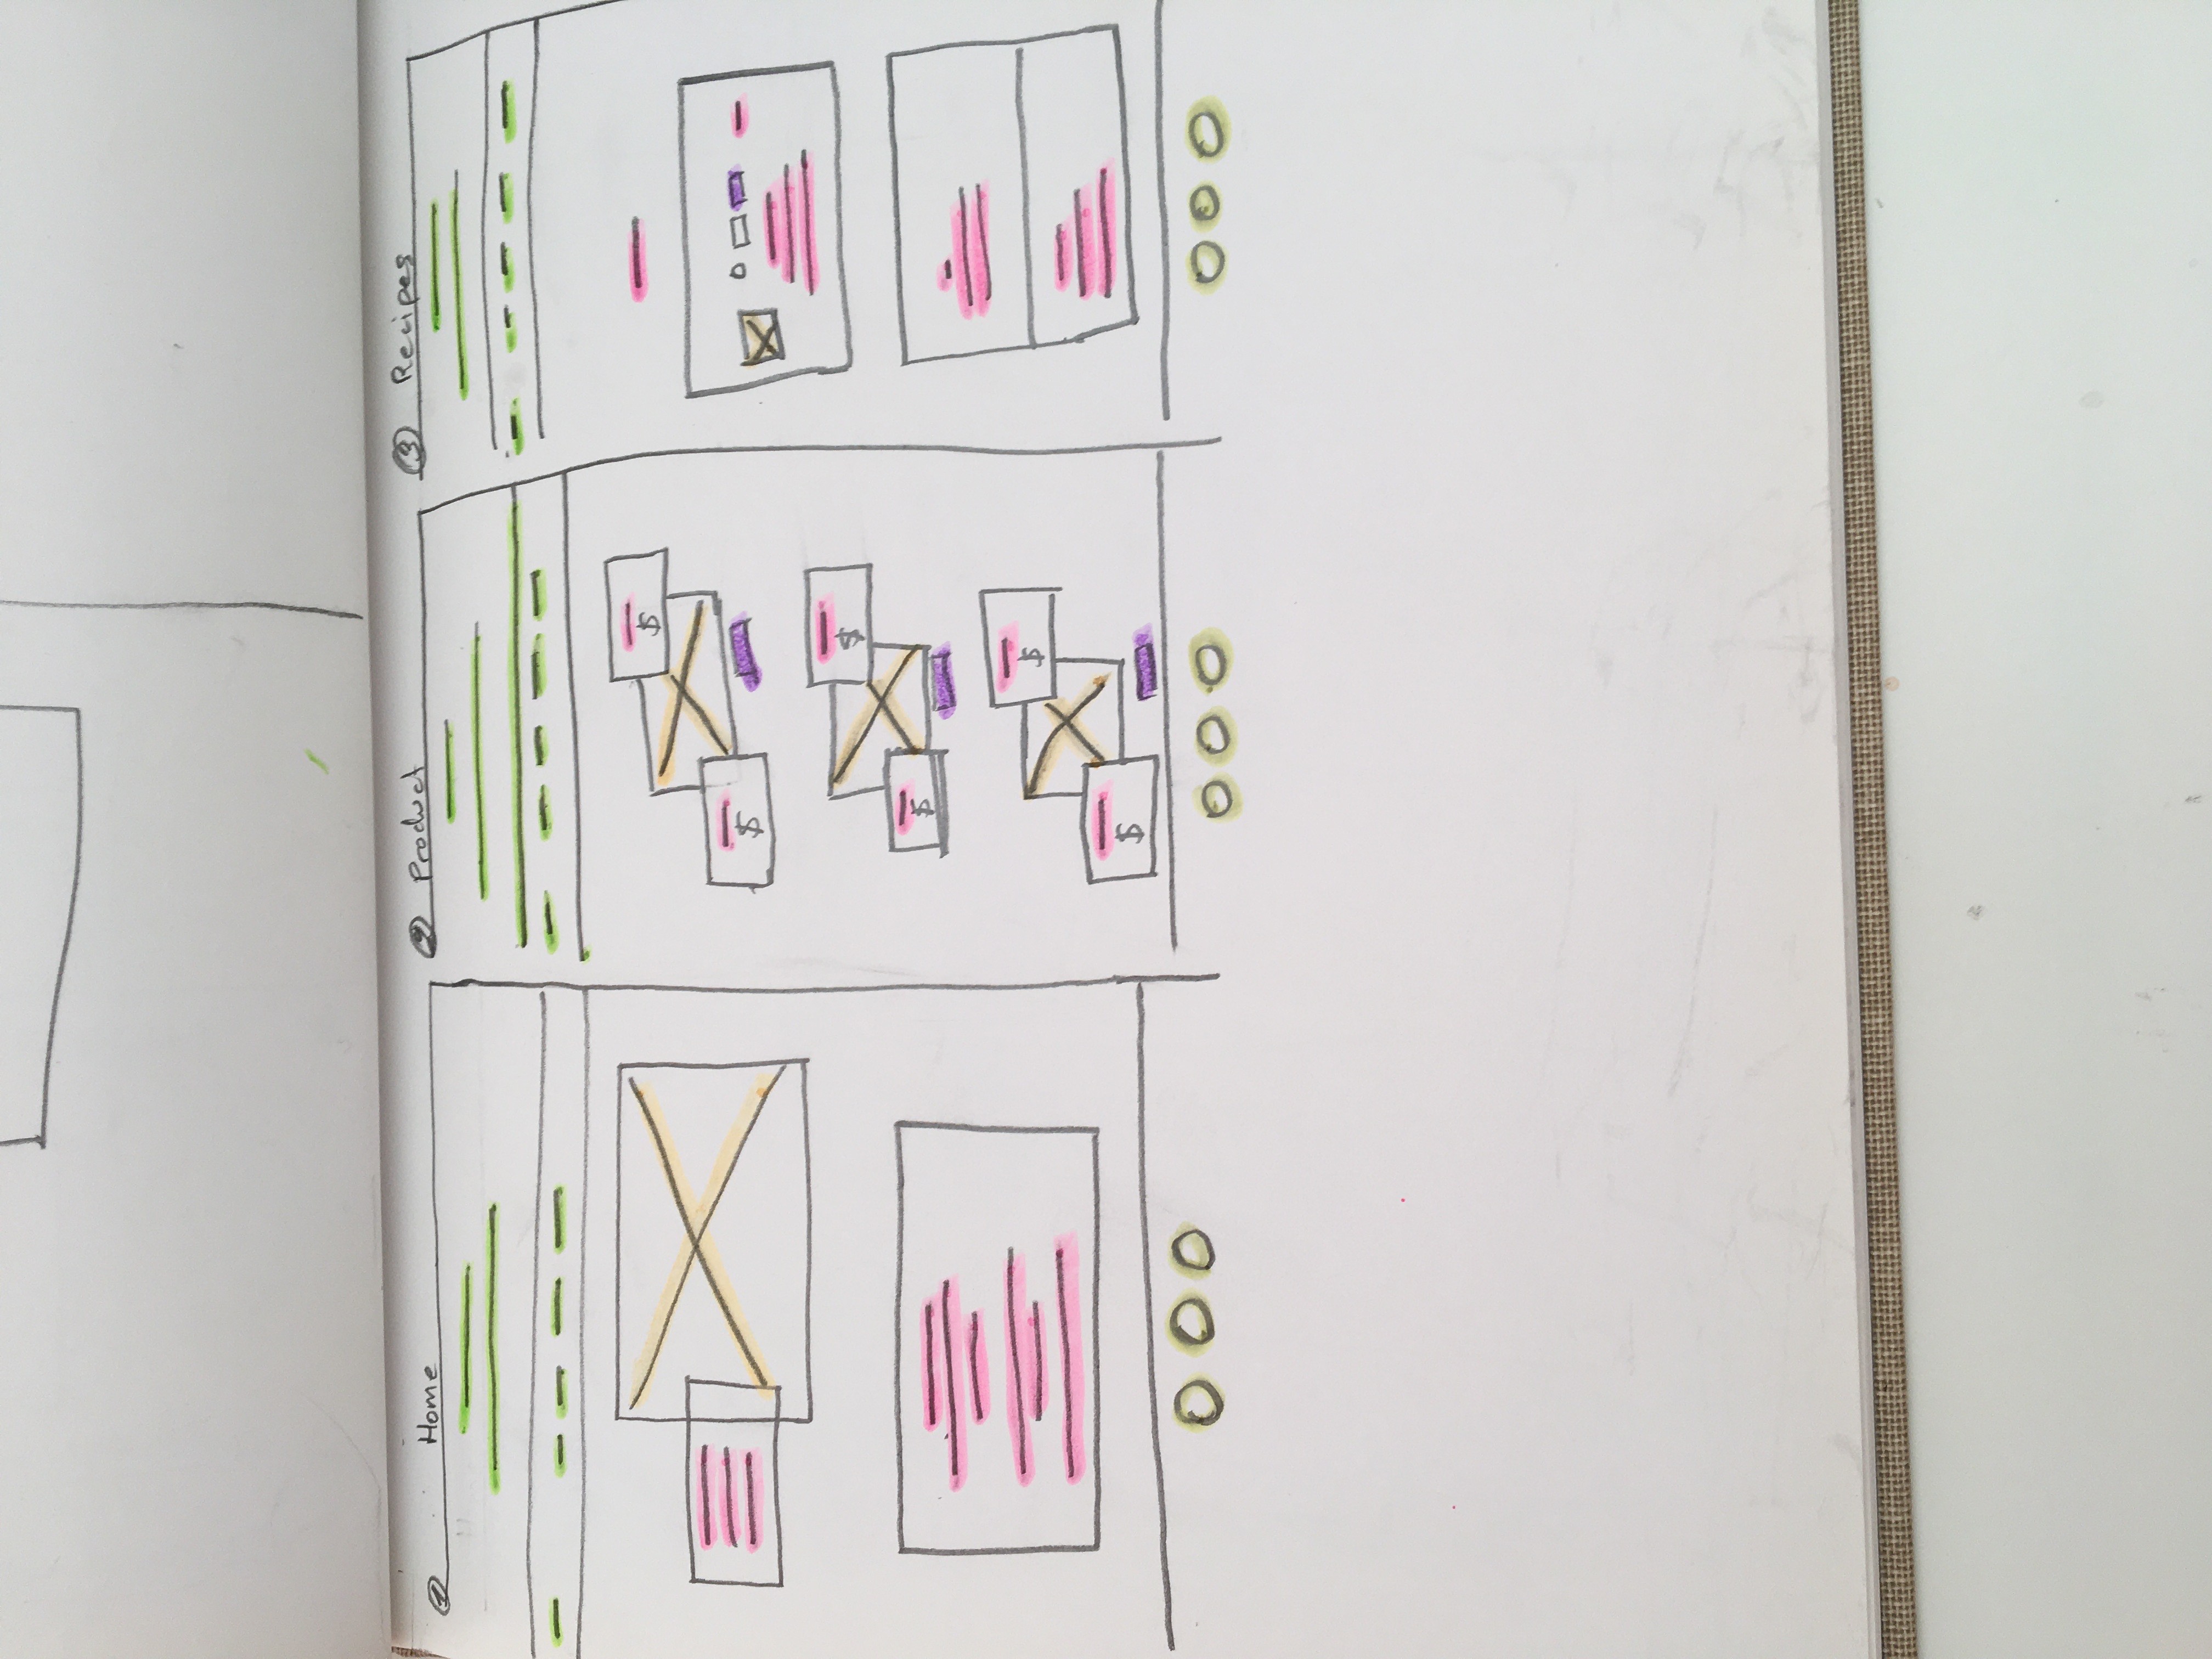 1 Home
2 Product
3 Recipes
$
$
$
$
$
$